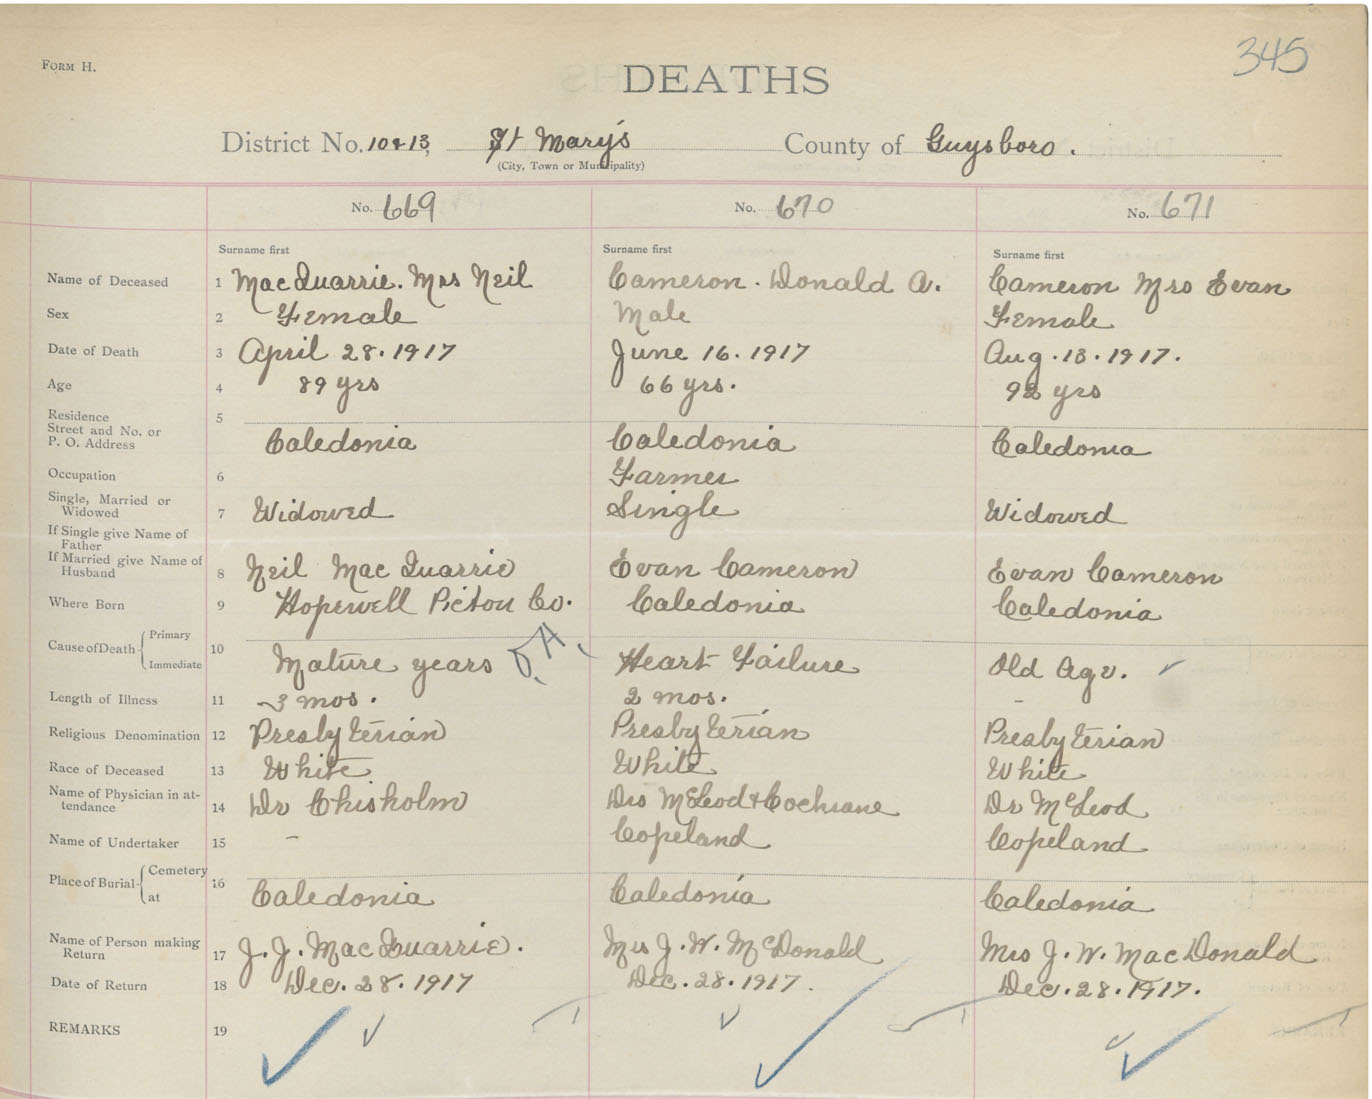 345
FORM H.
DEATHS
District No. 10 & 13, St Mary's County of Guysboro.
(City, Town or Municipality)
No. 669 No. 670 No. 671
Surname first Surname first Surname first
Name of Deceased 1 MacQuarrie. Mrs Neil Cameron. Donald A. Cameron Mrs Evan
Sex 2 Female Male Female
Date of Death 3 April 28. 1917 June 16. 1917 Aug. 13. 1917.
Age 4 89 yrs 66 yrs. 92 yrs
Residence 5
Street and No. or
P. O. Address Caledonia Caledonia Caledonia
Occupation 6 Farmer
Single, Married or
Widowed 7 Widowed Single Widowed
If Single give Name of
Father
If Married give Name of
Husband 8 Neil MacQuarrie Evan Cameron Evan Cameron
Where Born 9 Hopewell Pictou Co. Caledonia Caledonia
Cause of Death { Primary 10
Immediate Mature years O.A. Heart Failure Old Age.
Length of Illness 11 3 mos. 2 mos. -
Religious Denomination 12 Presbyterian Presbyterian Presbyterian
Race of Deceased 13 White White White
Name of Physician in at-
tendance 14 Dr Chisholm Drs McLeod & Cochrane Dr McLeod
Name of Undertaker 15 - Copeland Copeland
Place of Burial { Cemetery 16
at Caledonia Caledonia Caledonia
Name of Person making
Return 17 J. J. MacQuarrie. Mrs J. W. McDonald Mrs J. W. MacDonald
Date of Return 18 Dec. 28. 1917 Dec. 28. 1917. Dec. 28. 1917.
REMARKS 19